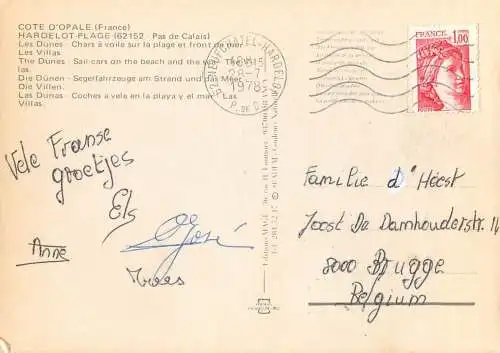 COTE D'OPALE (France)
HARDELOT-PLAGE (62152 - Pas de Calais)
Les Dunes - Chars à voile sur la plage et front de mer
Les Villas.
The Dunes - Sail-cars on the beach and the
Die Dünen - Segelfahrzeuge am Strand und das Meer
Die Villen.
Las Dunas - Coches a vela en la playa y el mar - Las
Villas.
62 NEUFCHATEL-HARDELOT
28-7
1978
P. DE C.
FRANCE
1,00
Vele Franse
groetjes
Els
José
Anne
Trees
Editions MAGE
Familie d'Hoest
Joost De Damhouderstr. 14
8000 Brugge
Belgium